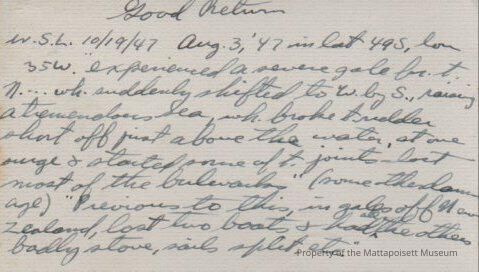 Good Return
W.S.L. 10/19/47 Aug. 3, '47 in lat 49S, lon
35W. experienced a severe gale fr. t.
N.... wh. suddenly shifted to W. by S., raising
a tremendous sea, wh. broke t. rudder
short off just above the water, at one
surge & started some of t. joints - lost
most of the bulwarks" (some other dam
age) "Previous to this, in gales off New
Zealand, lost two boats & had the others
badly stove, sails split etc."
Property of the Mattapoisett Museum